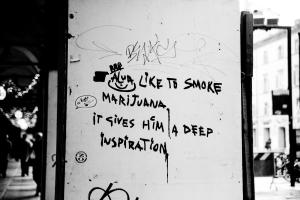 LIKE TO SMOKE
MARIJUANA,
IT GIVES HIM A DEEP
INSPIRATION